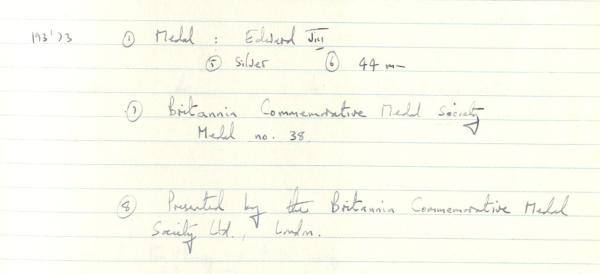 193'73 ① Medal : Edward VIII
⑤ Silver ⑥ 44 mm
⑦ Britannia Commemorative Medal Society
Medal no. 38
⑧ Presented by the Britannia Commemorative Medal
Society Ltd., London.